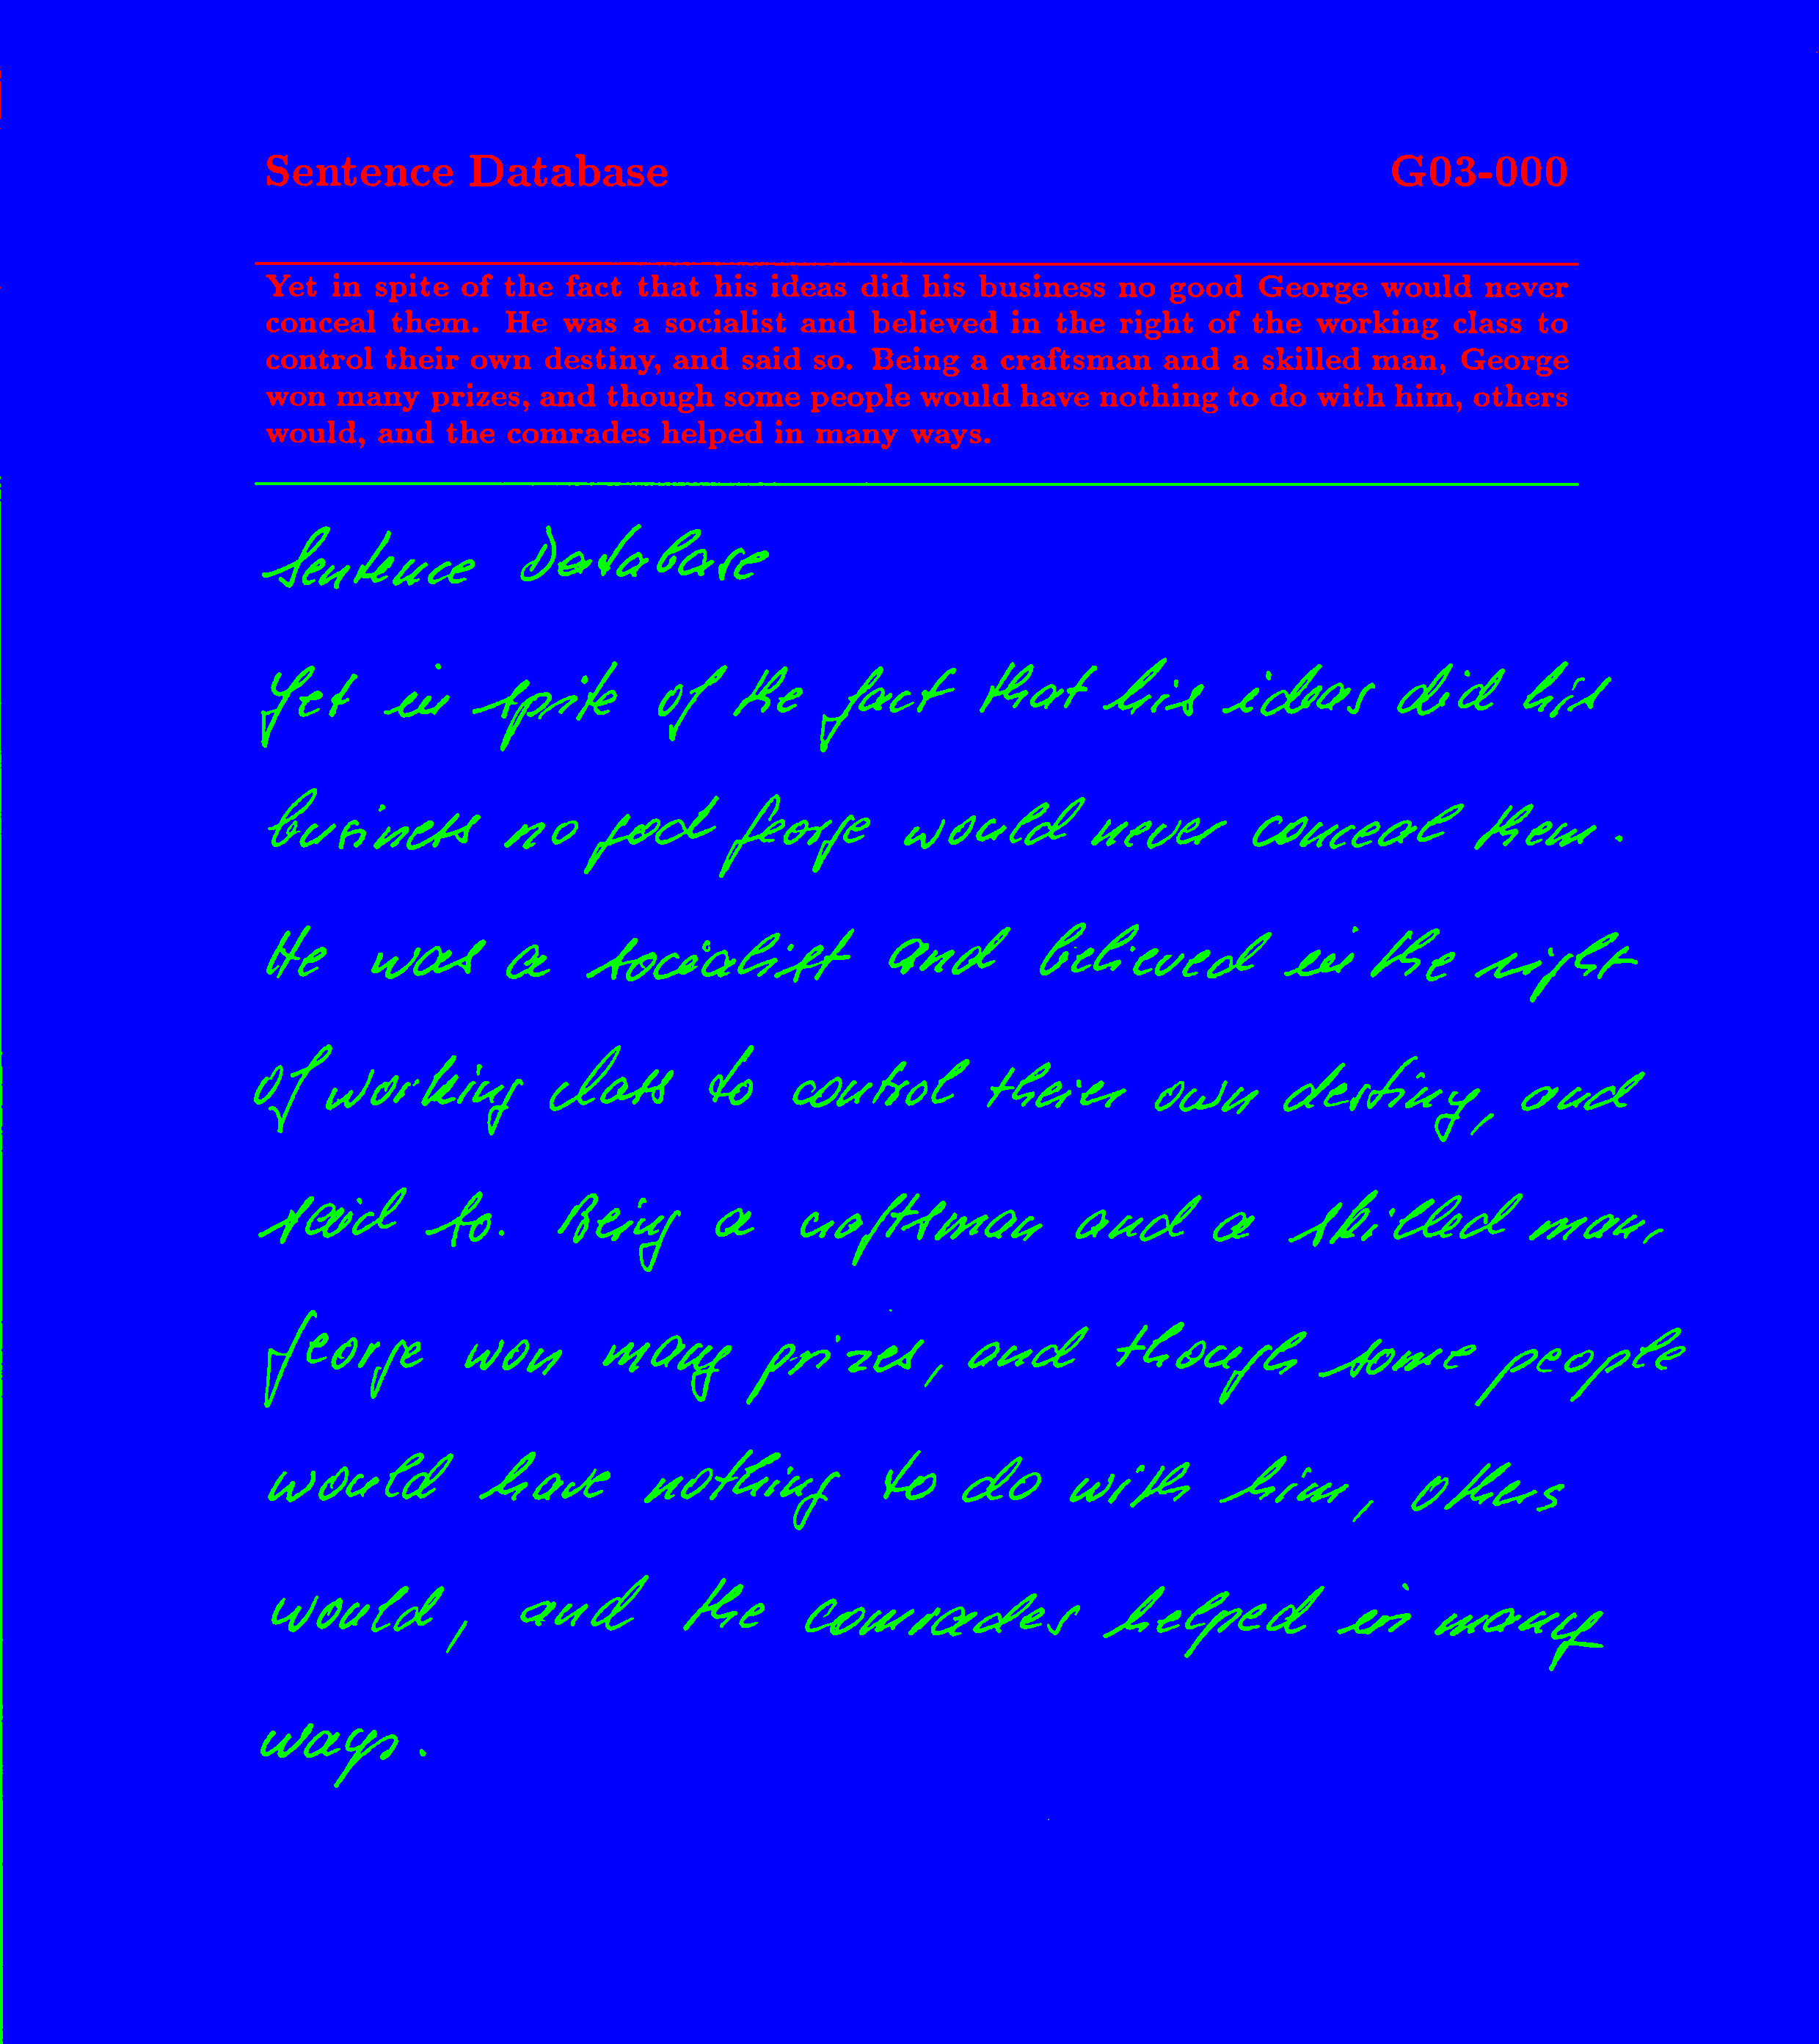 Sentence Database G03-000
Yet in spite of the fact that his ideas did his business no good George would never
conceal them. He was a socialist and believed in the right of the working class to
control their own destiny, and said so. Being a craftsman and a skilled man, George
won many prizes, and though some people would have nothing to do with him, others
would, and the comrades helped in many ways.
Sentence Database
Yet in spite of the fact that his ideas did his
business no good George would never conceal them.
He was a socialist and believed in the right
of working class to control their own destiny, and
said so. Being a craftsman and a skilled man,
George won many prizes, and though some people
would have nothing to do with him, others
would, and the comrades helped in many
ways.